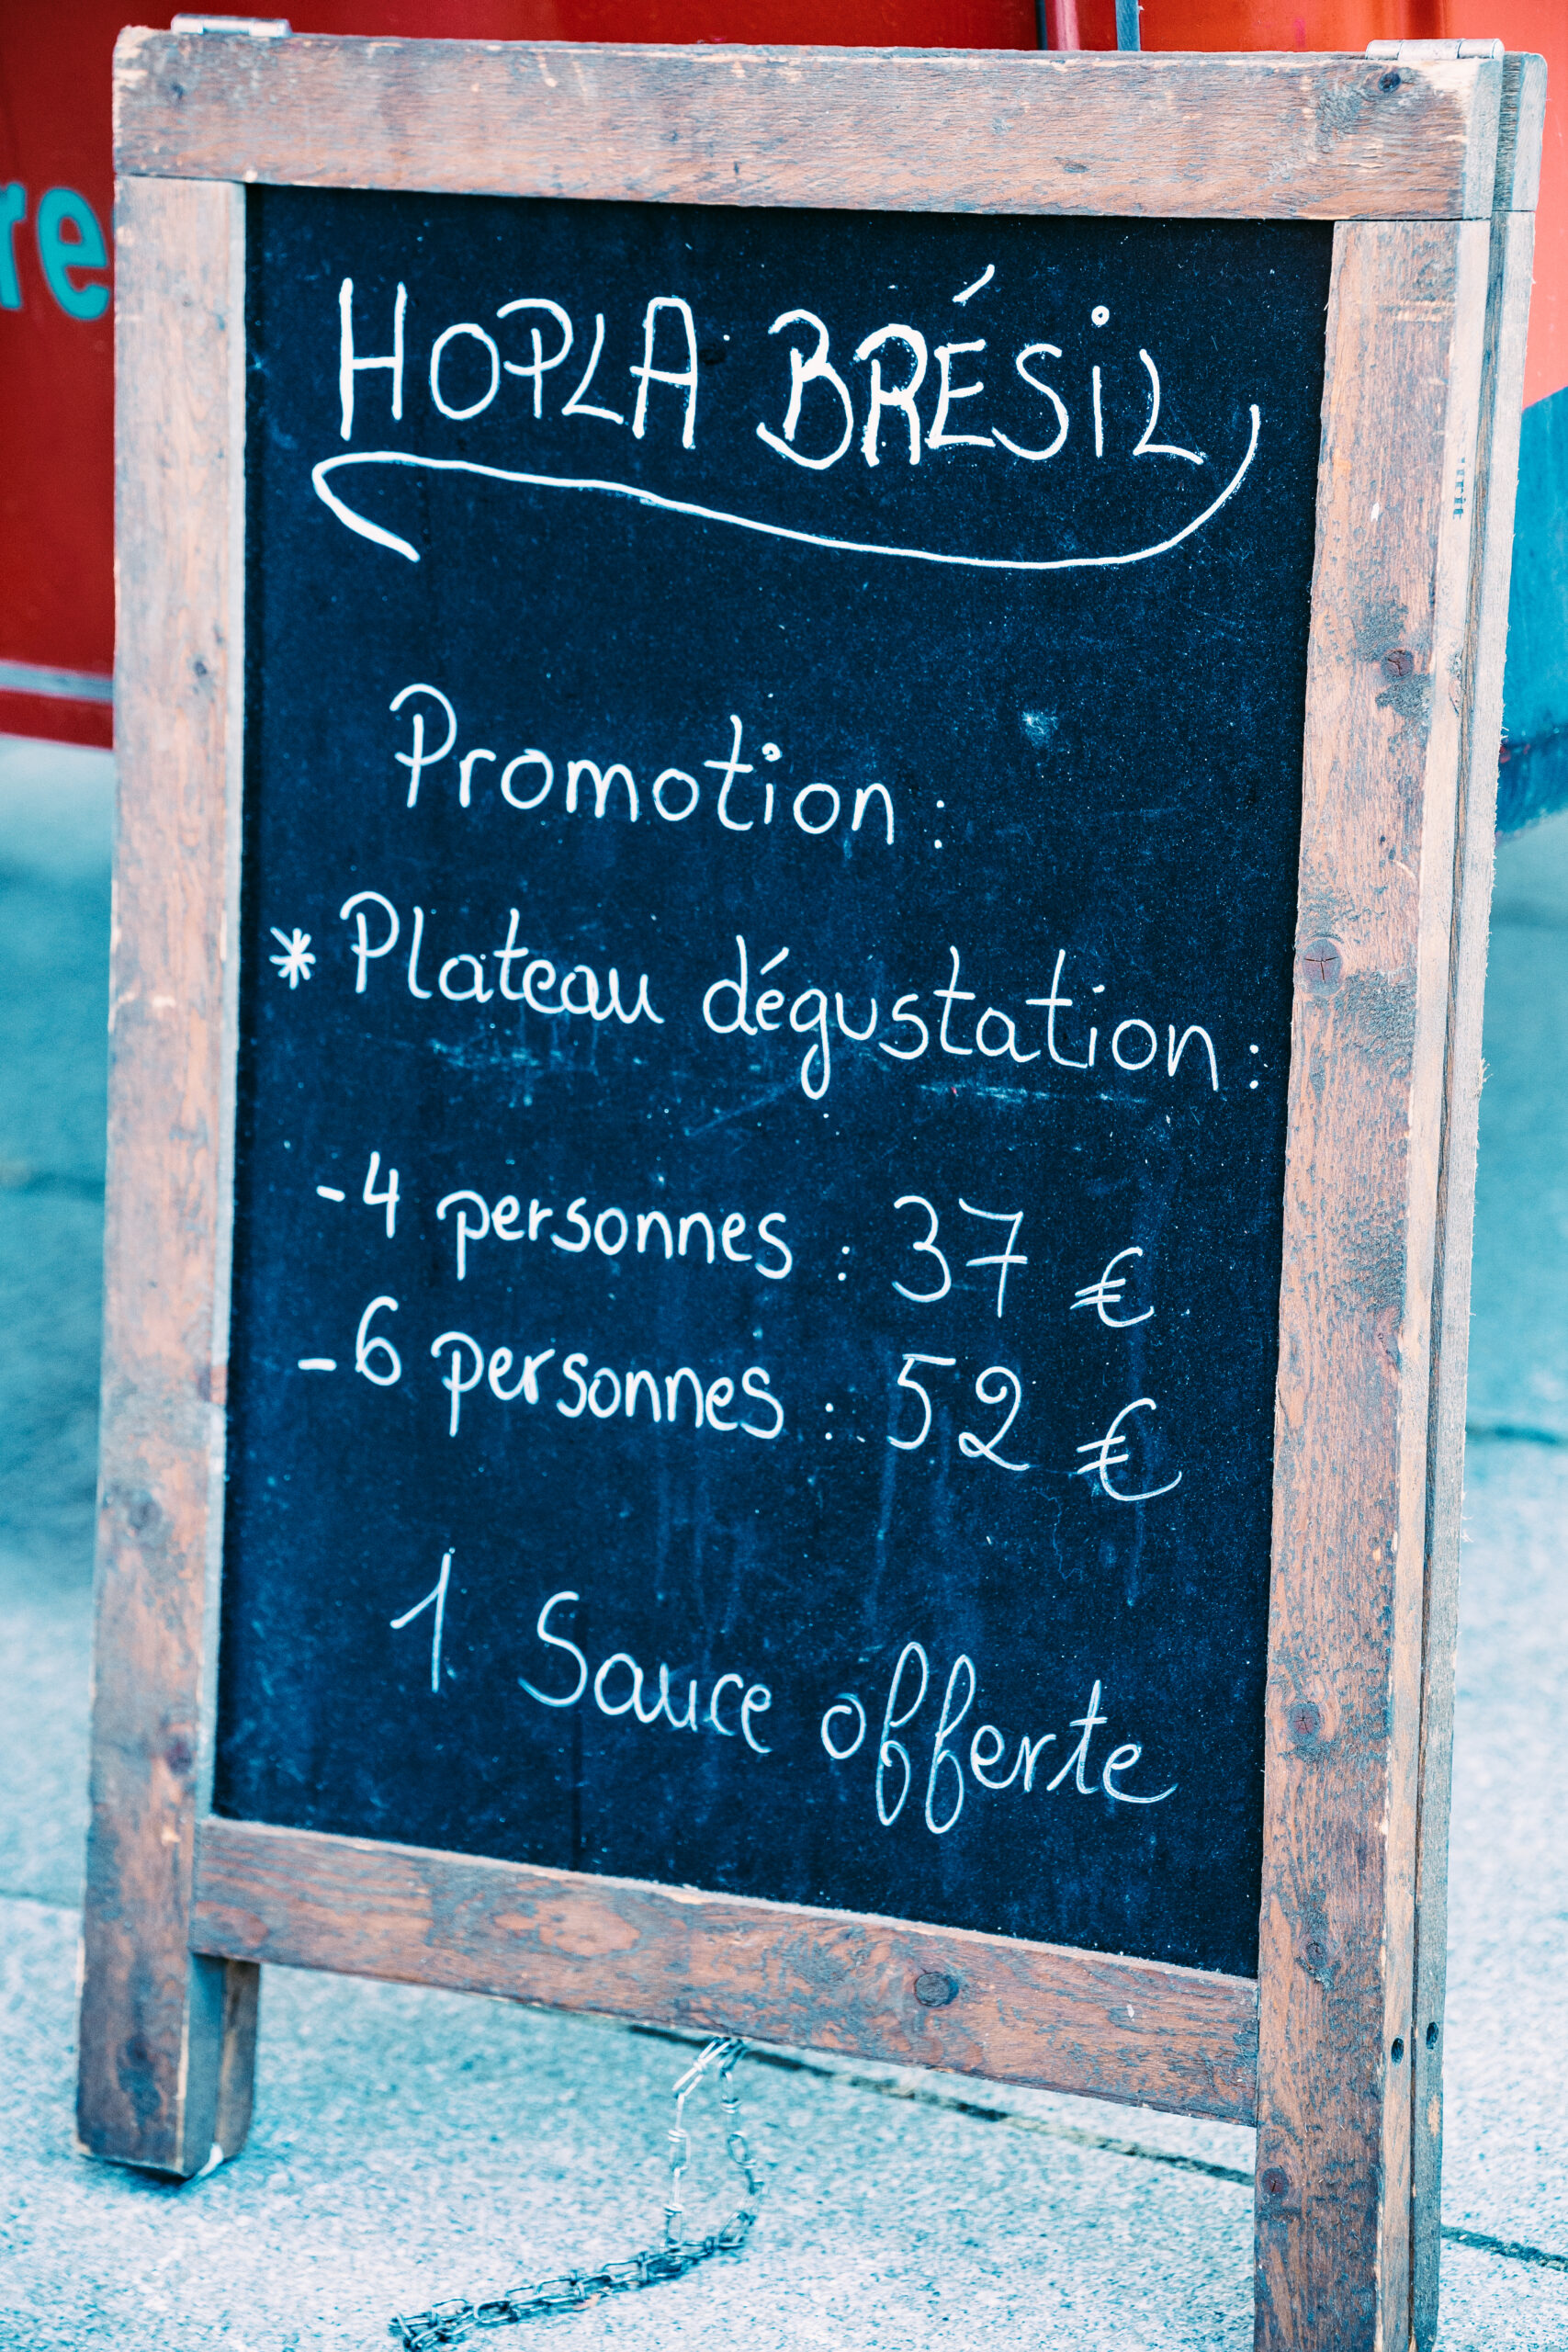 re
HOPLA BRÉSIL
Promotion :
* Plateau dégustation :
- 4 personnes : 37 €
- 6 personnes : 52 €
1 Sauce offerte